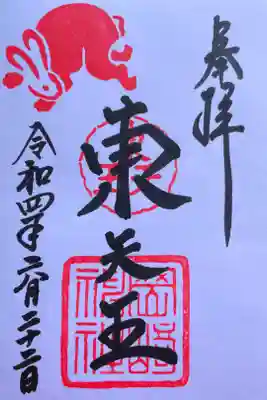 奉拝
東天王
岡崎神社
令和四年二月二十二日